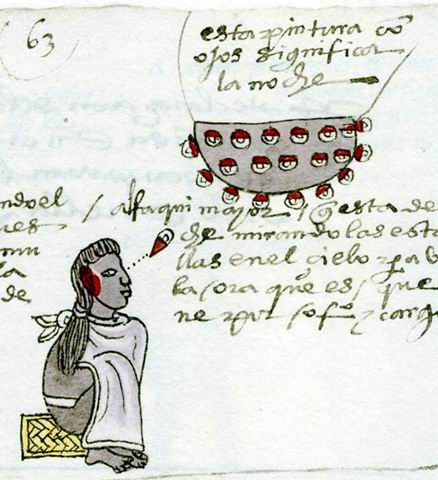 63
esta pintura cō
ojos significa
la noche
ndo el
ues
mu
la
de
/ alfaqui mayor / q̄ esta de
che mirando las estre
llas en el cielo
la ora que es / que
ne por ofiº y cargo